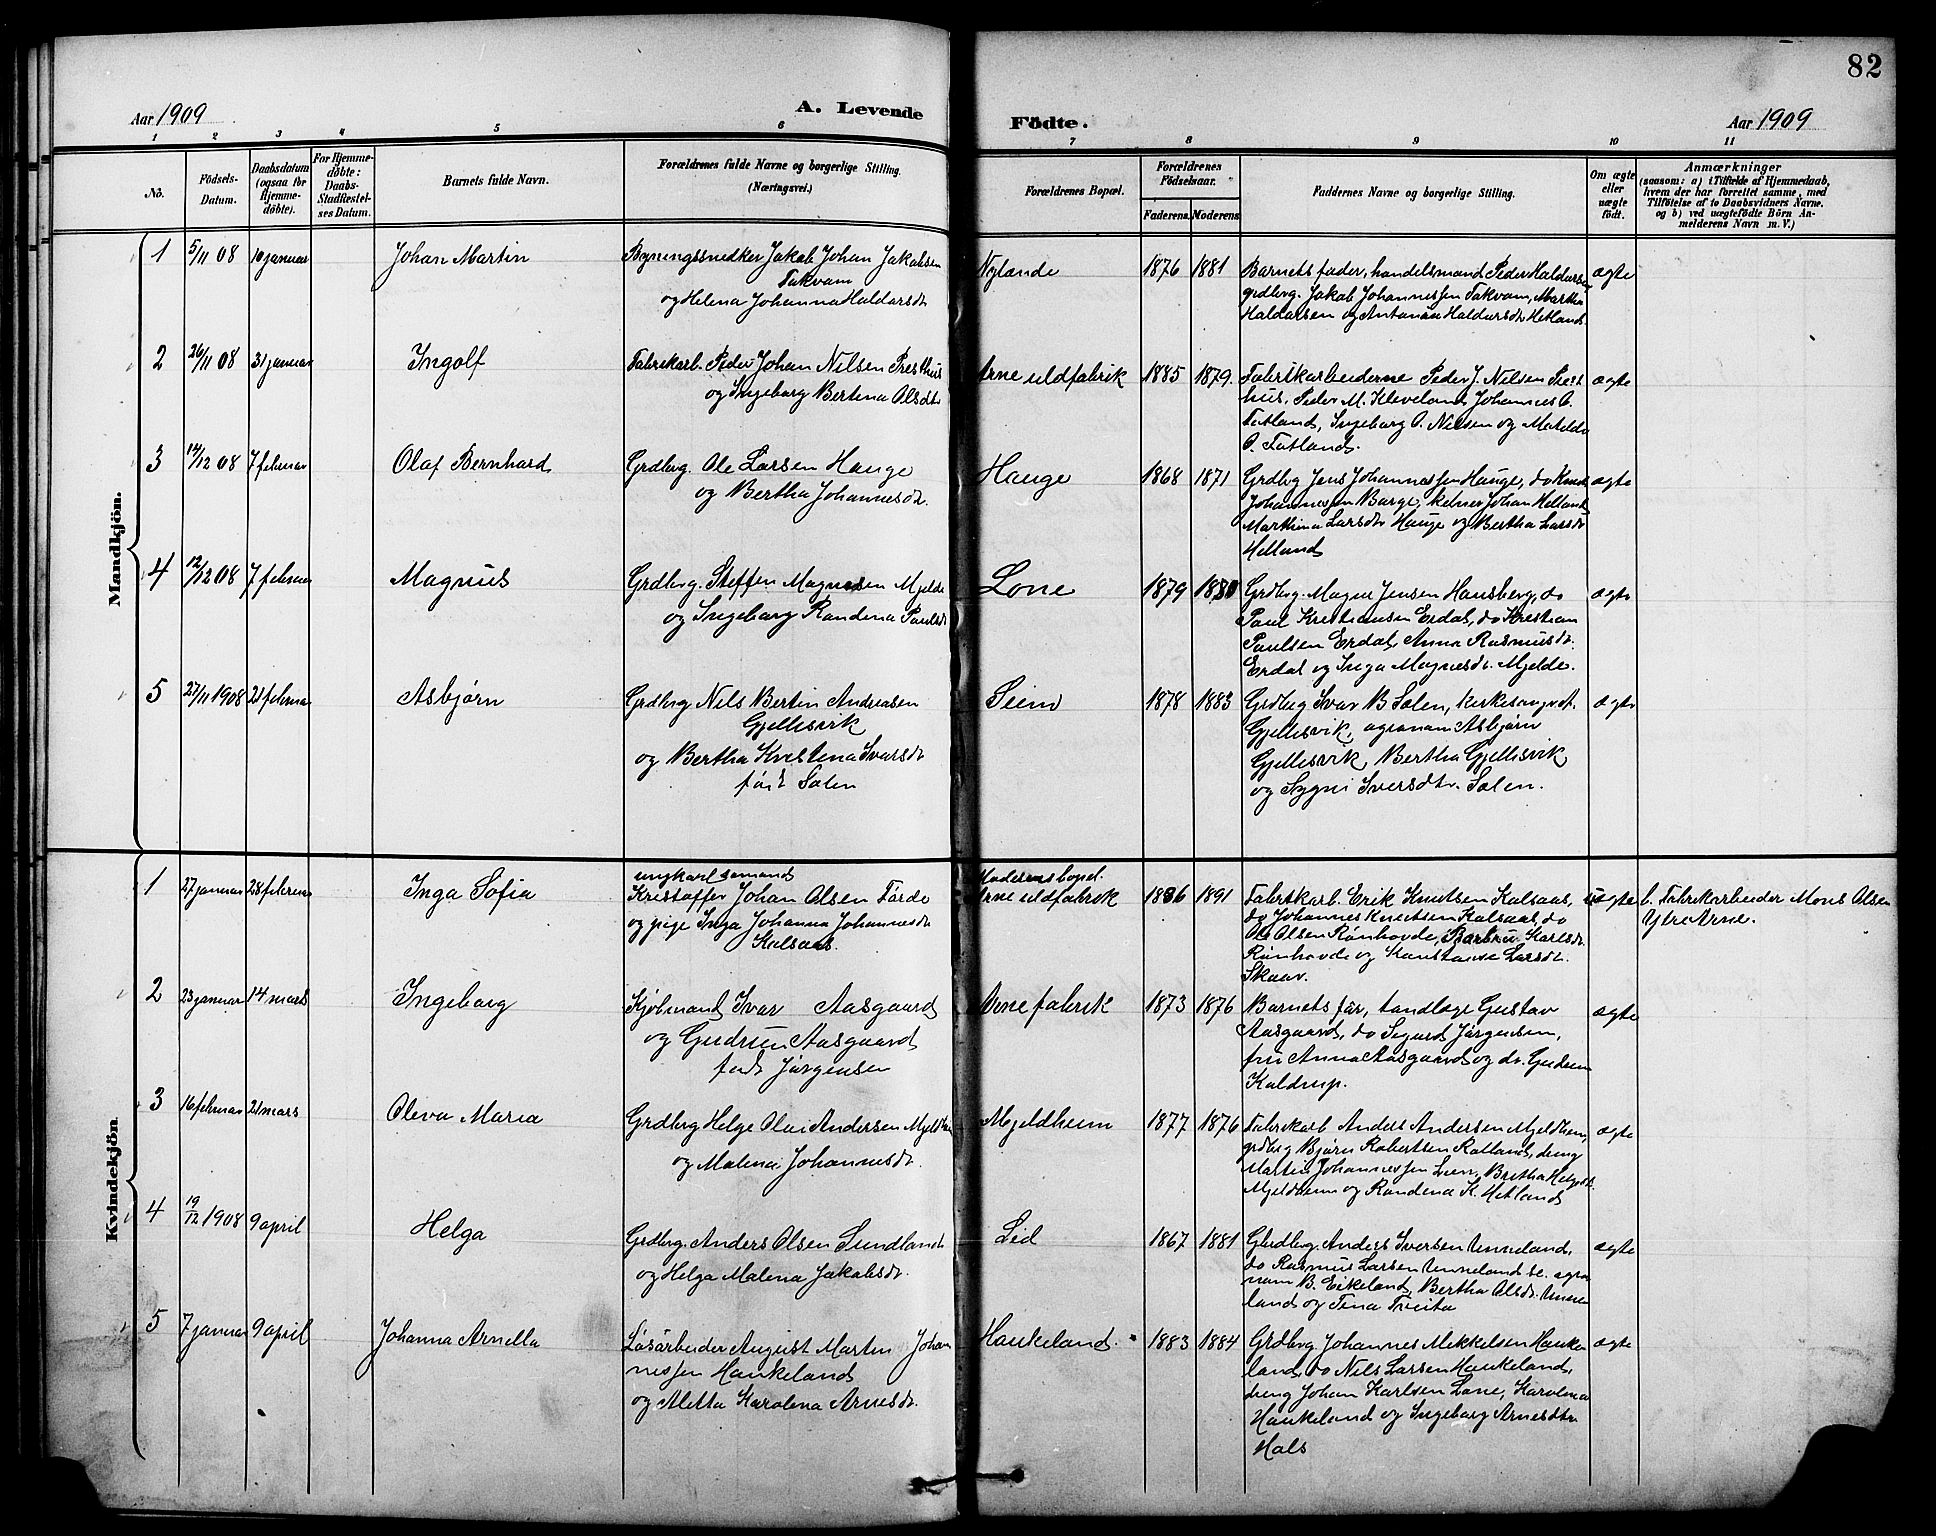 82
Aar 1909
A. Levende
Födte.
Aar 1909
1 2 3 4 5 6 7 8 9 10 11
No.
Födsels-
Datum.
Daabsdatum
(ogsaa for
Hjemme-
döbte).
For Hjemme-
döbte:
Daabs-
Stadfæstel-
ses Datum.
Barnets fulde Navn.
Forældrenes fulde Navne og borgerlige Stilling.
(Næringsvei.)
Forældrenes Bopæl.
Forældrenes
Födselsaar.
Faderens. Moderens.
Faddernes Navne og borgerlige Stilling.
Om ægte
eller
uægte
födt.
Anmærkninger
(saasom: a) i Tilfælde af Hjemmedaab,
hvem der har forrettet samme, med
Tilföielse af to Daabsvidners Navne.
og b) ved uægtefödte Börn An-
melderens Navn m. V.)
Mandkjön.
1 5/11 08 10 januar Johan Martin
Bygningssnedker Jakob Johan Jakobsen
Takvam
og Helena Johanna Haldorsdt
Nylande 1876 1881
Barnets fader, handelsmand Peder Haldorsen
grdbrg. Jakob Johannessen Takvam, Martha
Haldorsen og Antonia Haldorsdtr Hetland.
ægte
2 26/11 08 31 januar Ingolf
Fabrikarb. Peder Johan Nilsen Presthus
og Ingeborg Bertina Olsdtr
Arne uldfabrik 1885 1879.
Fabrikarbeiderne Peder J. Nilsen Prest
hus, Peder M. Kleveland, Johannes O.
Totland, Ingeborg O. Nilsen og Matilde
O. Totland.
ægte
3 14/12 08 7 februar Olaf Bernhard
Grdbrg. Ole Larsen Hauge
og Bertha Johannesdt.
Hauge 1868 1871
Grdbrg Jens Johannessen Hauge, do Knud
Johannessen Barge, kelner Johan Helland
Marthina Larsdtr Hauge og Bertha Larsdt
Helland
ægte
4 12/12 08 7 februar Magnus
Grdbrg. Steffen Magnesen Mjelde
og Ingeborg Randina Paulsdt
Lone 1879 1880
Grdbrg. Magne Jensen Hausberg, do
Paul Kristiansen Erdal, do Kristian
Paulsen Erdal, Anna Rasmusdt.
Erdal og Inga Magnesdt. Mjelde.
ægte
5 27/11 1908 21 februar Asbjørn
Grdbrg Nils Bertin Andreasen
Gjellisvik
og Bertha Kristina Ivarsdt
født Solen
Seim 1878 1883
Grdbrg Ivar B Solen, kirkesanger A.
Gjellisvik, agronom Asbjørn
Gjellisvik, Bertha Gjellisvik
og Sygni Iversdtr. Solen.
ægte
Kvindekjön
1 27 januar 28 februar Inga Sofia
ungkarl sømand
Kristoffer Johan Olsen Førde
og pige Inga Johanna Johannesdt
Kalsaas.
Moderens bopel.
Arne uldfabrik 1886 1891
Fabrikarb. Erik Knutsen Kalsaas,
do Johannes Knutsen Kalsaas, do
Ole Olsen Rønhovde, Barbru Karlsdt.
Rønhovde og Konstanse Larsdt.
Skaar.
uægte
b. Fabrikarbeider Mons Olsen
Ytre Arne.
2 23 januar 14 mars Ingeborg
Kjøbmand Ivar Aasgaard
og Gudrun Aasgaard
født Jørgensen
Arne fabrik 1873 1876
Barnets far, tandlæge Gustav
Aasgaard, do Sigurd Jørgensen,
fru Anna Aasgaard og do. Gudrun
Koldrup.
ægte
3 16 februar 21 mars Oleva Maria
Grdbrg Helge Olai Andersen Mjeldheim
og Malena Johannesdt.
Mjeldheim 1877 1876
Fabrikarb Anders Andersen Mjeldheim,
grdbrg Bjørn Robertsen Rolland, dreng
Martin Johannessen Lien, Bertha Helgesdt.
Mjeldheim og Randina K. Hetland
ægte
4 19/12 1908 9 april Helga
Grdbrg. Anders Olsen Sundland
og Helga Malena Jakobsdt.
Lid 1867 1881
Grdbrg. Anders Iversen Unneland,
do Rasmus Larsen Unneland, agro
nom B. Eikeland, Bertha Olsdt. Unne
land og Tina Tveita
ægte
5 7 januar 9 april Johanna Arnetta
Løsarbeider August Martin Johan
nessen Haukeland
og Aletta Karolina Arnesdt.
Haukeland. 1883 1884
Grdbrg. Johannes Mikkelsen Hauke
land, do Nils Larsen Haukeland,
dreng Johan Karlsen Lone, Karolina
Haukeland og Ingeborg Arnesdtr
Hals
ægte